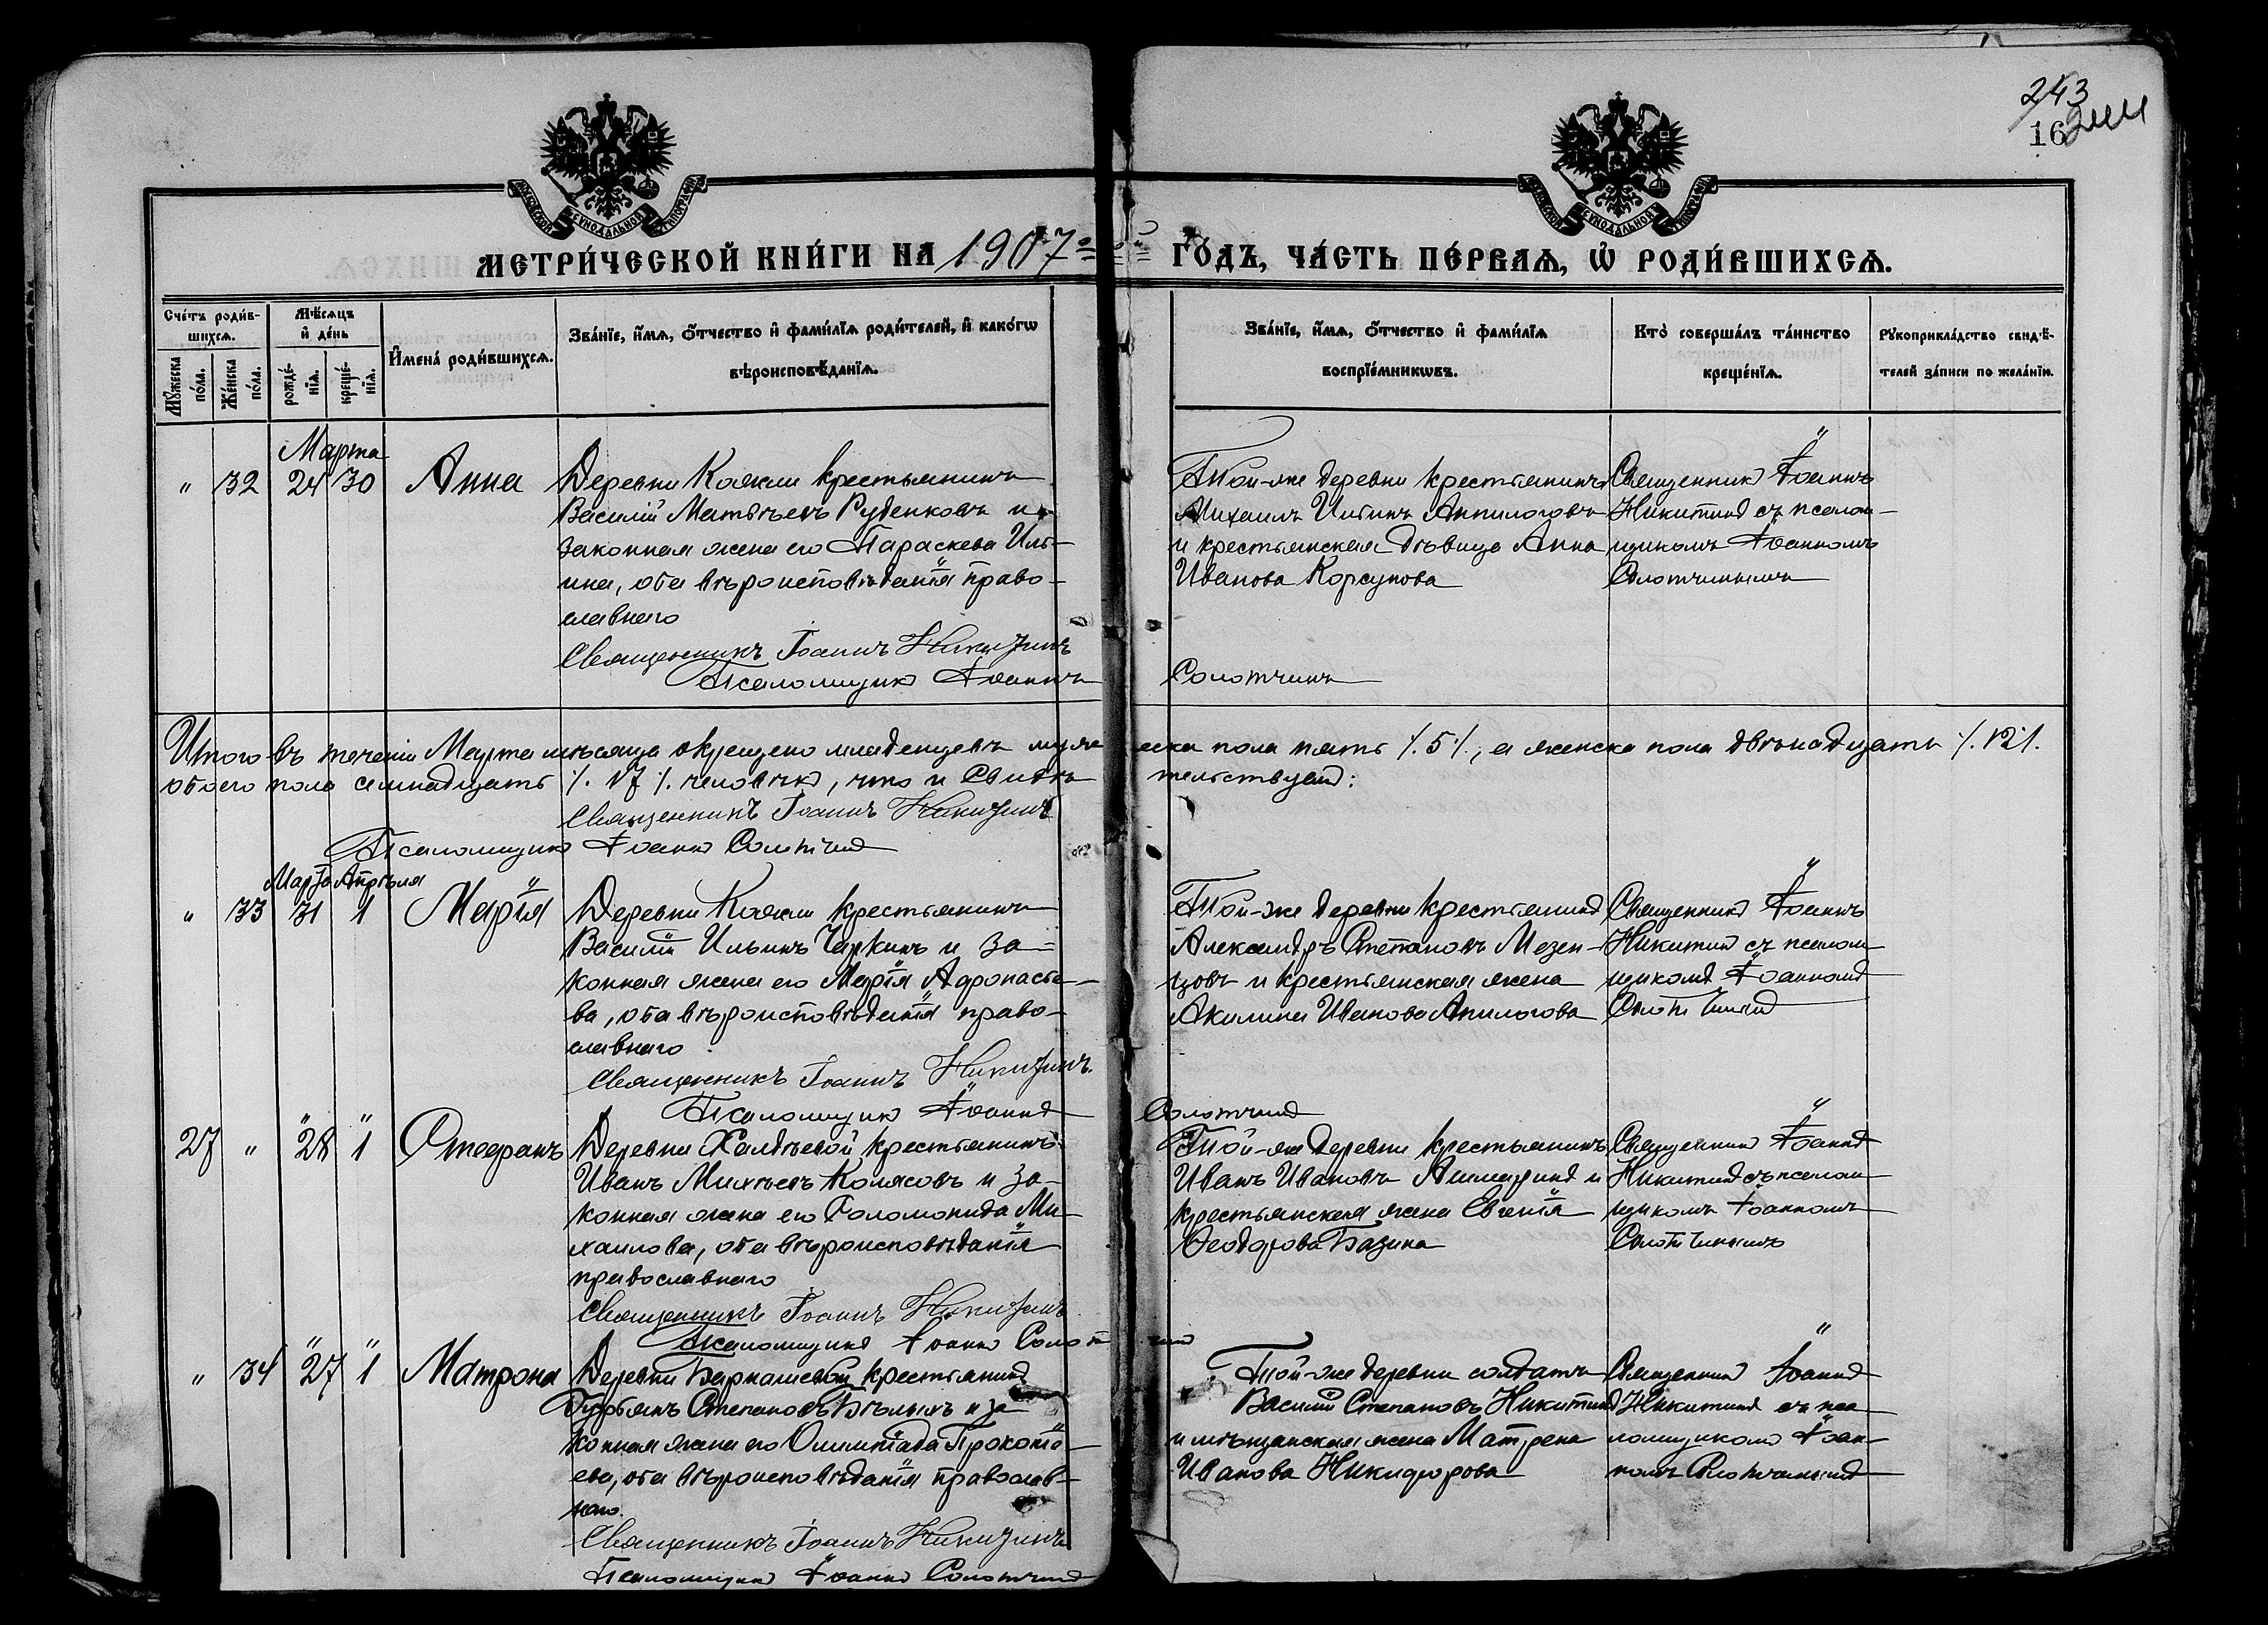 243
244
16
МОСКОВСКОЙ СѴНОДАЛЬНОЙ ТИПОГРАФІИ
МОСКОВСКОЙ СѴНОДАЛЬНОЙ ТИПОГРАФІИ
МЕТРИ́ЧЕСКОЙ КНИ́ГИ НА 1907 ГО́ДЪ, ЧА́СТЬ ПЕ́РВАѦ, Ѡ҆ РОДИ́ВШИХСѦ.
Сче́тъ роди́в-
шихсѧ.
Мꙋ́жеска по́ла.
Же́нска по́ла.
Мѣ́сѧцъ
и҆ де́нь
рожде́-
нїѧ.
креще́-
нїѧ.
И҆мена̀ роди́вшихсѧ.
Зва́нїе, и҆́мѧ, ѻ҆́тчество и҆ фами́лїѧ роди́телей, и҆ како́гѡ
вѣроисповѣ́данїѧ.
Зва́нїе, и҆́мѧ, ѻ҆́тчество и҆ фами́лїѧ
воспрїе́мникѡвъ.
Кто̀ соверша́лъ та́инство
креще́нїѧ.
Рꙋкоприкла́дство свидѣ́-
телей за́писи по жела́нїю.
Марта
" 32 24 30 Анна
Деревни Кожли крестьянинъ
Василій Матвѣевъ Руденковъ и
законная жена его Параскева Иль-
ина, оба вѣроисповѣданія право-
славнаго
Священникъ Іоаннъ Никитинъ
Псаломщикъ Іоаннъ Солотчинъ
Той-же деревни крестьянинъ
Михаилъ Ильинъ Анпилоговъ
и крестьянская дѣвица Анна
Иванова Корсунова
Священникъ Іоаннъ
Никитинъ съ псалом-
щикомъ Іоанномъ
Солотчинымъ
Итого въ теченіи Марта мѣсяца окрещено младенцевъ мужеска пола пять /.5/., а женска пола двѣнадцать /.12/.
обоего пола семнадцать /.17/. человѣкъ, что и свидѣтельствуемъ:
Священникъ Іоаннъ Никитинъ
Псаломщикъ Іоаннъ Солотчинъ
Марта Апрѣля
" 33 31 1 Марія
Деревни Кожли крестьянинъ
Василій Ильинъ Чаркинъ и за-
конная жена его Марія Афонасье-
ва, оба вѣроисповѣданія право-
славнаго
Священникъ Іоаннъ Никитинъ.
Псаломщикъ Іоаннъ Солотчинъ
Той-же деревни крестьянинъ
Александръ Степановъ Мезен-
цовъ и крестьянская жена
Акилина Иванова Анпилогова
Священникъ Іоаннъ
Никитинъ съ псалом-
щикомъ Іоанномъ
Солотчинымъ
27 " 28 1 Стефанъ
Деревни Халдѣевой крестьянинъ
Иванъ Михѣевъ Колясовъ и за-
конная жена его Соломонида Ми-
хаилова, оба вѣроисповѣданія
православнаго
Священникъ Іоаннъ Никитинъ
Псаломщикъ Іоаннъ Солотчинъ
Той-же деревни крестьянинъ
Иванъ Ивановъ Ашмаринъ и
крестьянская жена Евгенія
Ѳеодорова Базина
Священникъ Іоаннъ
Никитинъ съ псалом-
щикомъ Іоанномъ
Солотчинымъ
" 34 27 1 Матрона
Деревни крестьянинъ
Гурьянъ Степановъ Бѣлыхъ и за
конная жена его Олимпіада Прокопі-
ева, оба вѣроисповѣданія православ-
наго.
Священникъ Іоаннъ Никитинъ
Псаломщикъ Іоаннъ Солотчинъ
Той-же деревни солдатъ
Василій Степановъ Никитинъ
и мѣщанская жена Матрена
Иванова Никифорова
Священникъ Іоаннъ
Никитинъ съ пса
ломщикомъ Іоан-
номъ Солотчинымъ